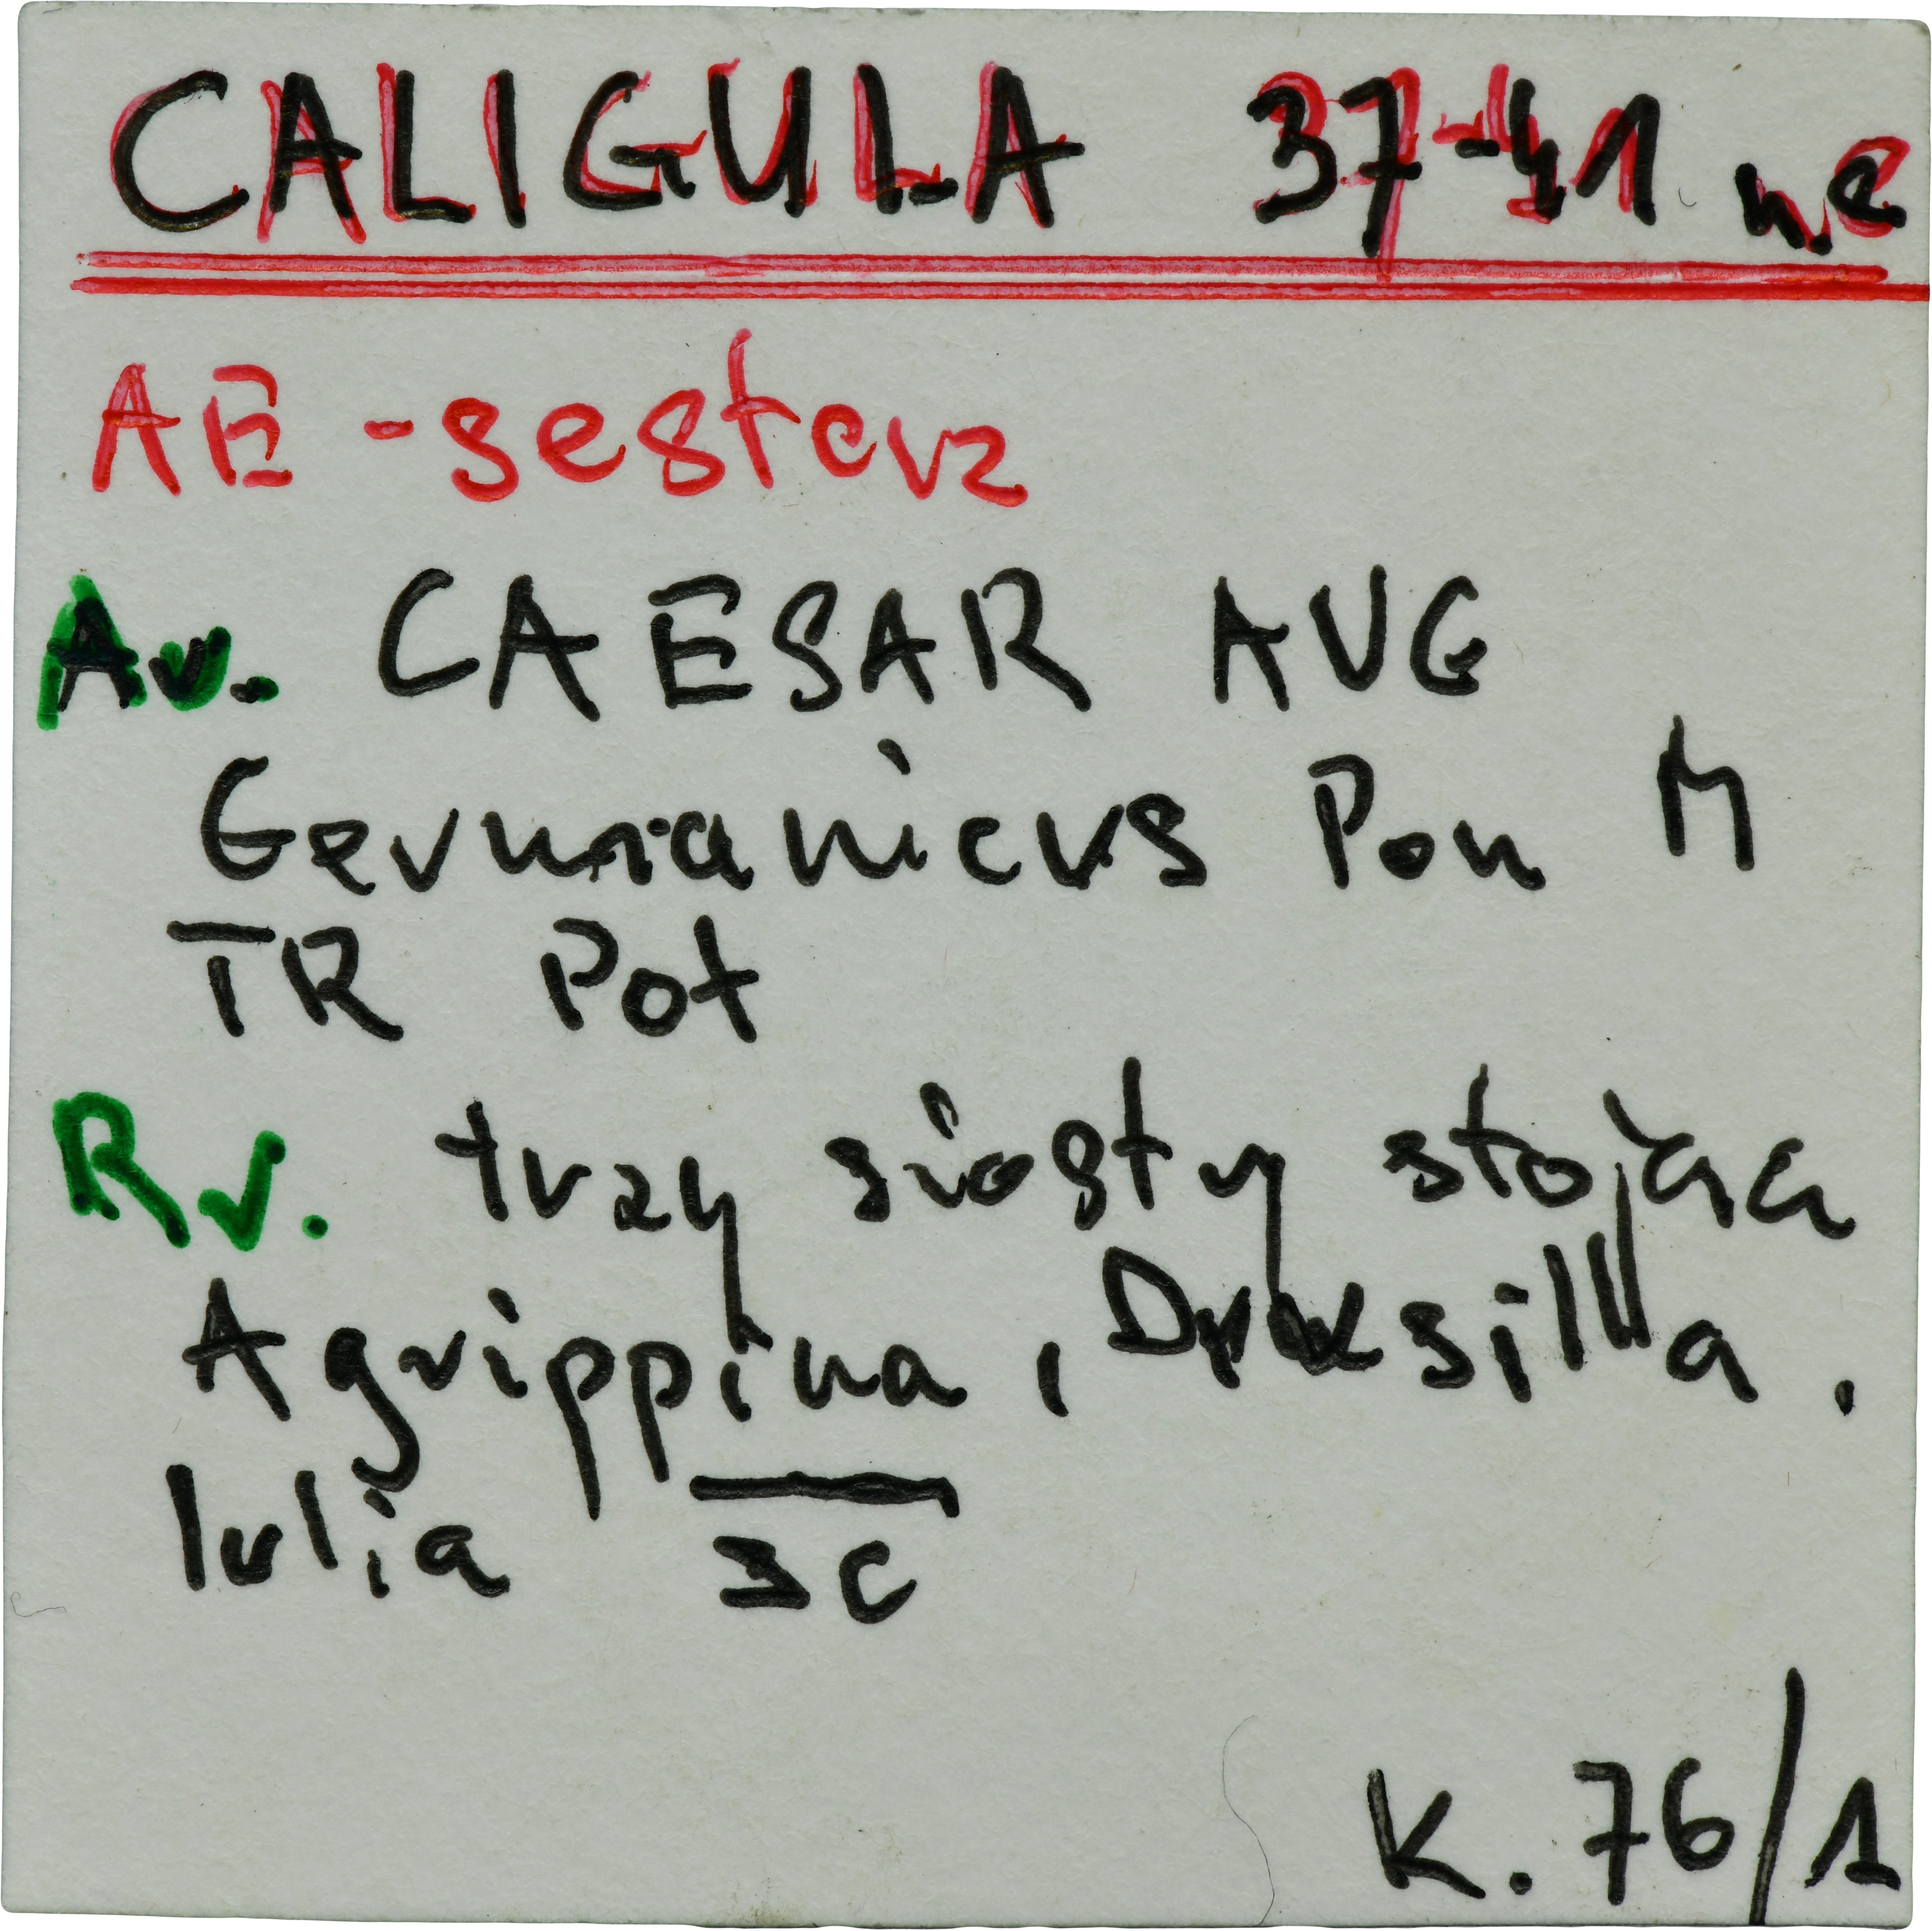 CALIGULA 37-41 n.e
AE - sesterz
Av. CAESAR AUG
Germanicus Pon M
TR Pot
Rv. trzy siostry stojąca
Agrippina, Druksilla.
Iulia SC
K. 76/1